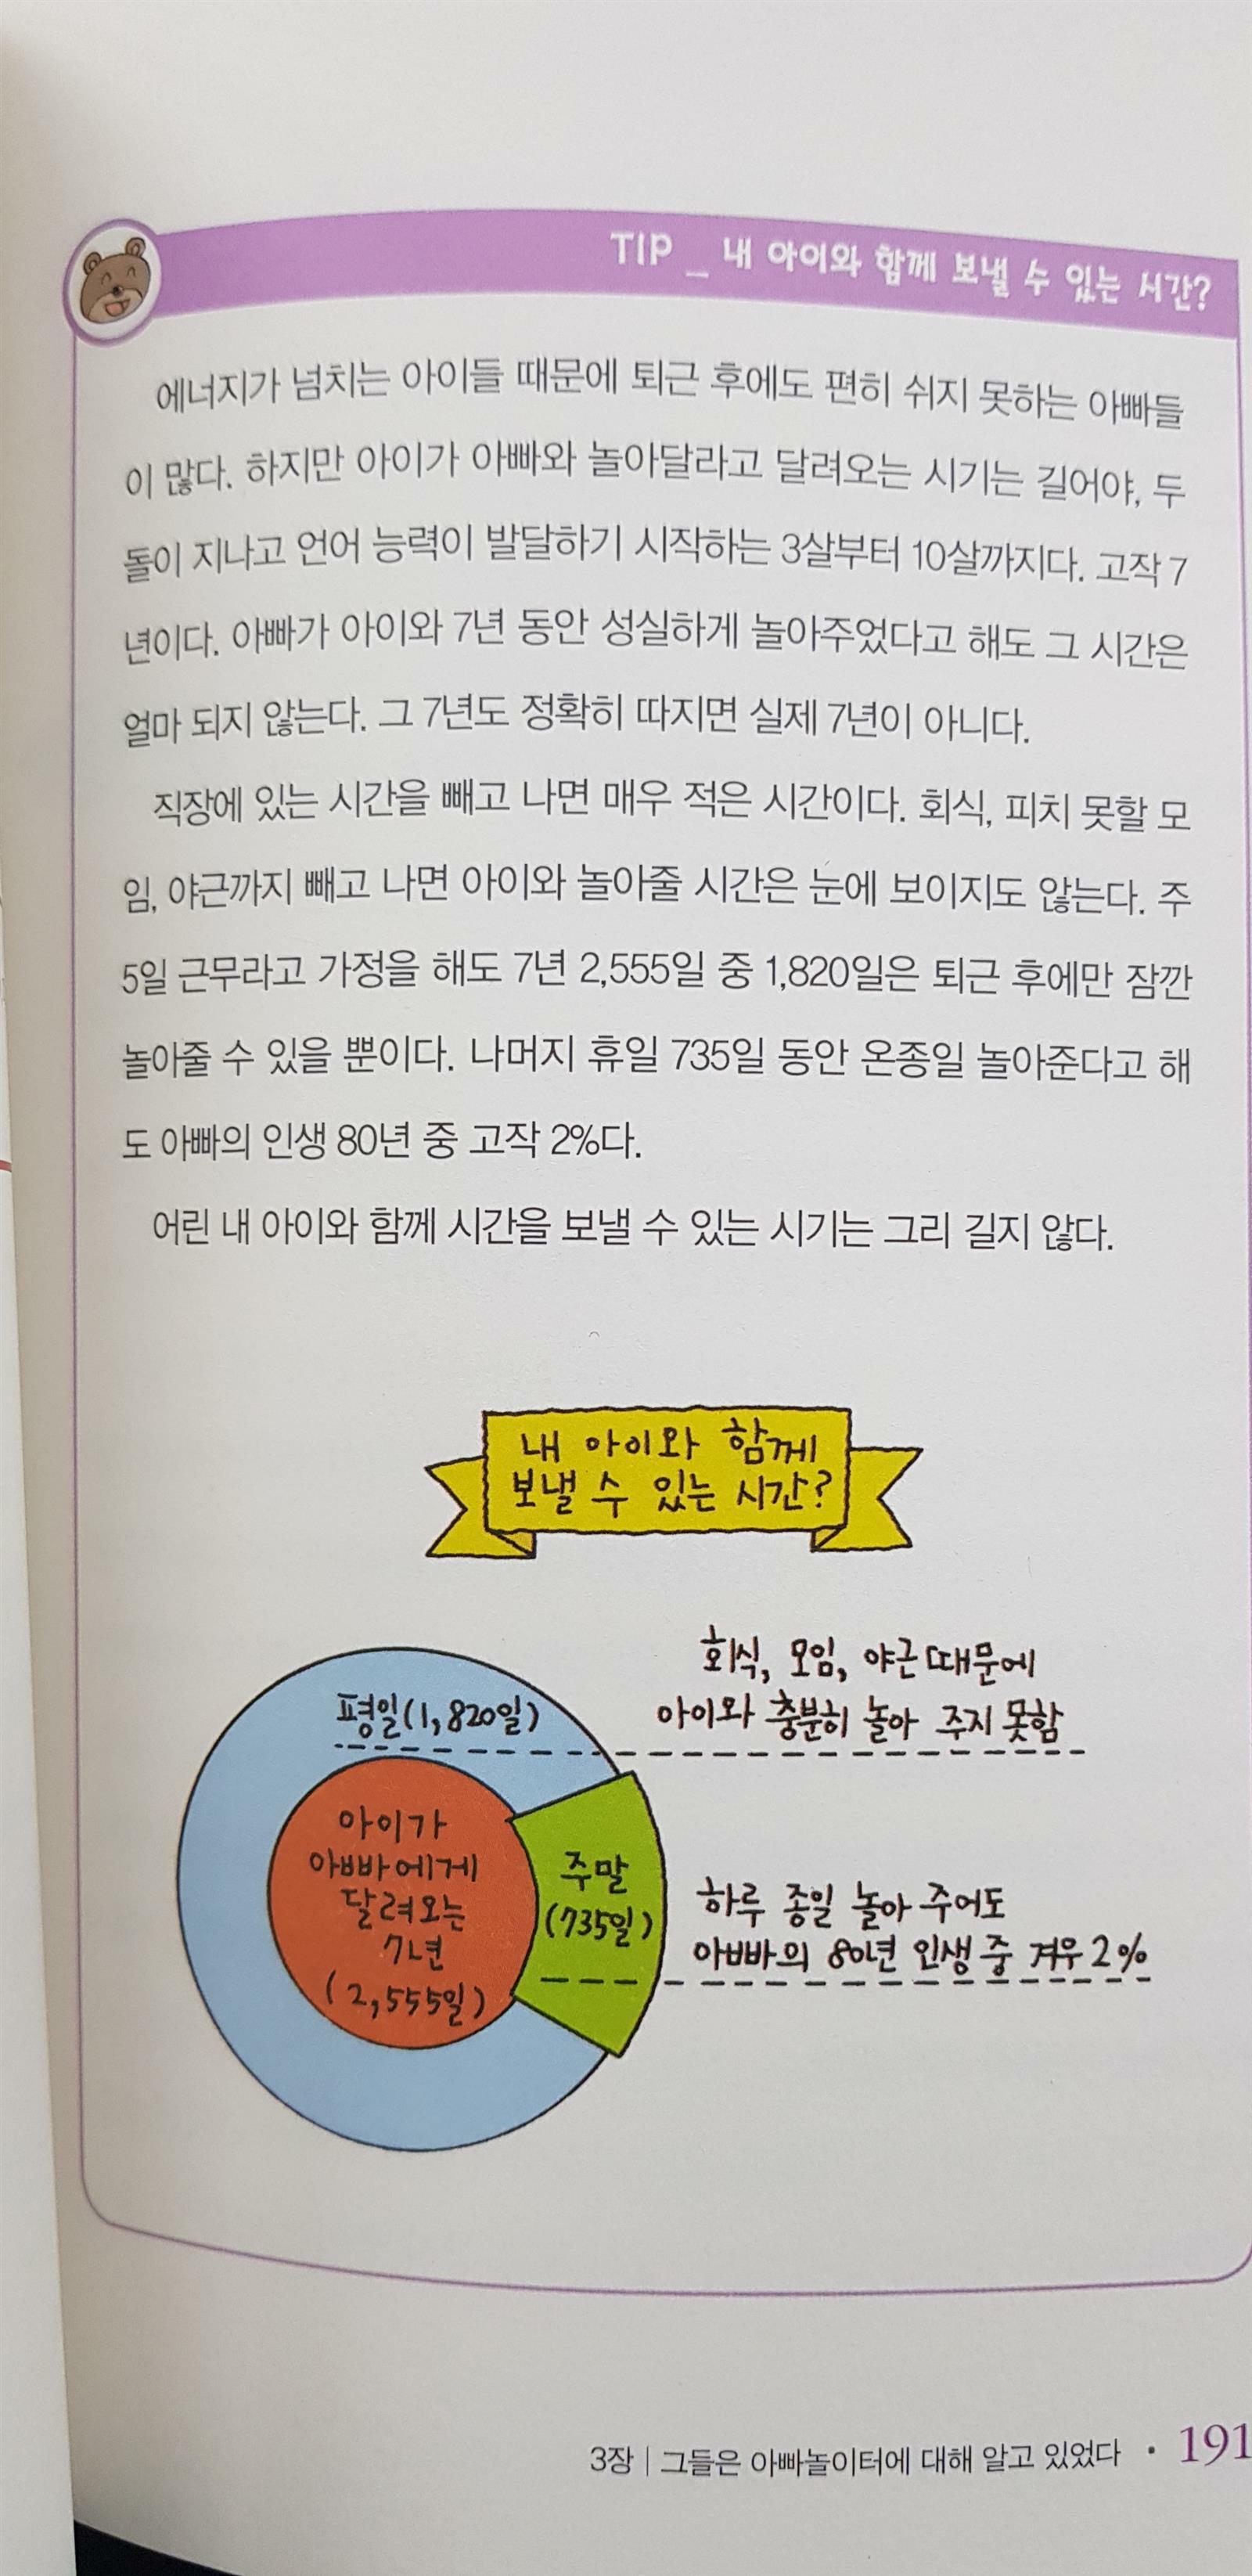 TIP _ 내 아이와 함께 보낼 수 있는 시간?
에너지가 넘치는 아이들 때문에 퇴근 후에도 편히 쉬지 못하는 아빠들
이 많다. 하지만 아이가 아빠와 놀아달라고 달려오는 시기는 길어야, 두
돌이 지나고 언어 능력이 발달하기 시작하는 3살부터 10살까지다. 고작 7
년이다. 아빠가 아이와 7년 동안 성실하게 놀아주었다고 해도 그 시간은
얼마 되지 않는다. 그 7년도 정확히 따지면 실제 7년이 아니다.
직장에 있는 시간을 빼고 나면 매우 적은 시간이다. 회식, 피치 못할 모
임, 야근까지 빼고 나면 아이와 놀아줄 시간은 눈에 보이지도 않는다. 주
5일 근무라고 가정을 해도 7년 2,555일 중 1,820일은 퇴근 후에만 잠깐
놀아줄 수 있을 뿐이다. 나머지 휴일 735일 동안 온종일 놀아준다고 해
도 아빠의 인생 80년 중 고작 2%다.
어린 내 아이와 함께 시간을 보낼 수 있는 시기는 그리 길지 않다.
내 아이와 함께
보낼 수 있는 시간?
회식, 모임, 야근 때문에
아이와 충분히 놀아 주지 못함
평일(1,820일)
아이가
아빠에게
달려오는
7년
(2,555일)
주말
(735일)
하루 종일 놀아 주어도
아빠의 80년 인생 중 겨우 2%
3장 | 그들은 아빠놀이터에 대해 알고 있었다 • 191